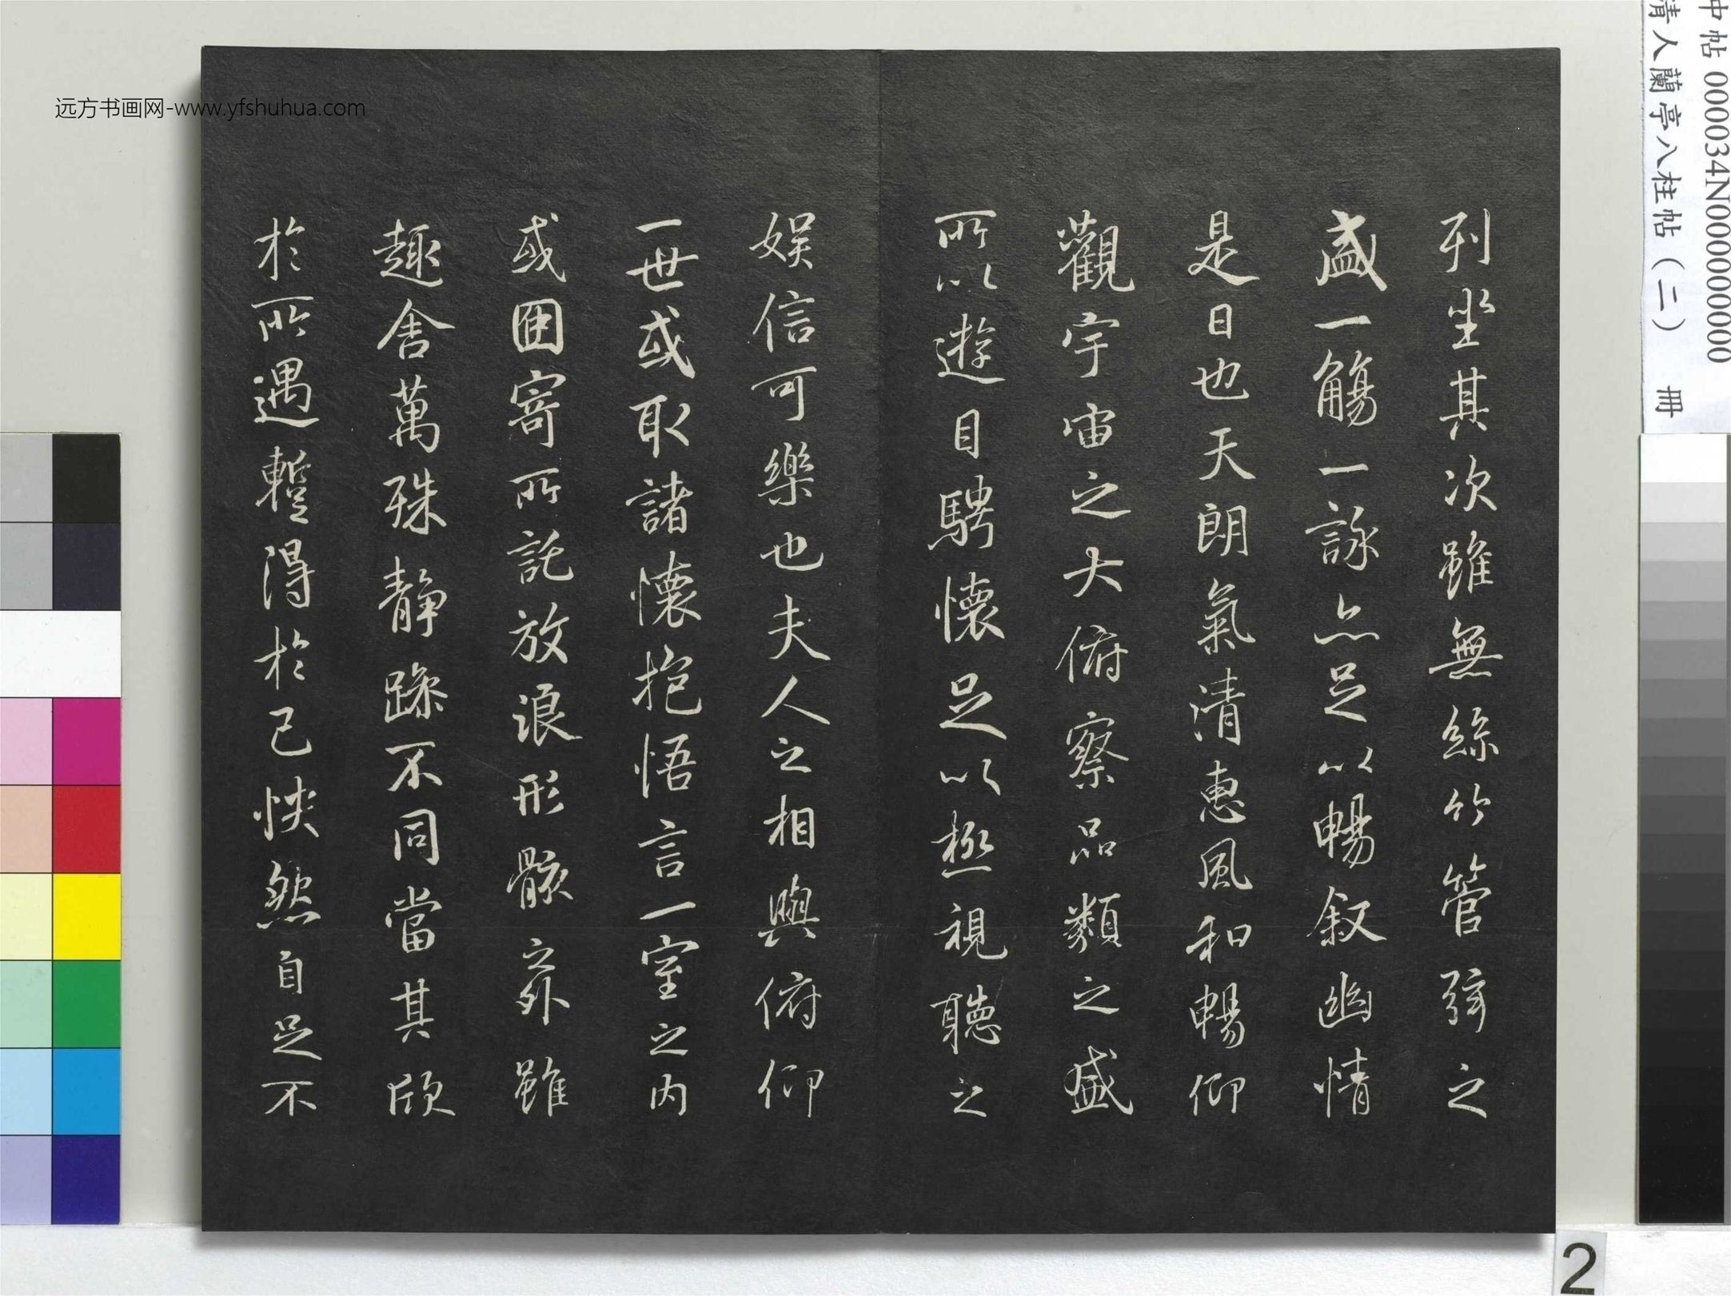 列坐其次雖無絲竹管弦之
盛一觴一詠亦足以暢敘幽情
是日也天朗氣清惠風和暢仰
觀宇宙之大俯察品類之盛
所以遊目騁懷足以極視聽之
娛信可樂也夫人之相與俯仰
一世或取諸懷抱悟言一室之內
或因寄所託放浪形骸之外雖
趣舍萬殊靜躁不同當其欣
於所遇蹔得於己怏然自足不
远方书画网-www.yfshuhua.com
中帖 000034N000000000
清人蘭亭八柱帖（二） 冊
2